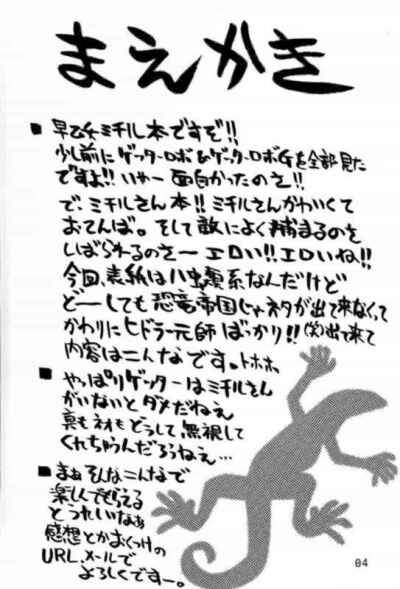 まえかき
■ 早乙女ミチル本ですぞ!!
少し前にゲッターロボ&ゲッターロボGを全部見た
ですよ!!いやー面白かったのさ!!
で、ミチルさん本!!ミチルさんかわいくて
おてんば。そして敵によく捕まるのさ
しばられるのさーエロい!!エロいね!!
今回、表紙はハ虫類系なんだけど
どーしても恐竜帝国じゃネタが出て来なくって
かわりにヒドラー元師ばっかり!!(笑)出て来て
内容はこんなです。トホホ
■ やっぱりゲッターはミチルさん
がいないとダメだねえ
真もネオもどうして無視して
くれちゃうんだろうねえ…
■ まぁそんなこんなで
楽しんでもらえる
とうれしいなぁ
感想とかおくつけの
URL、メールで
よろしくですー。
04